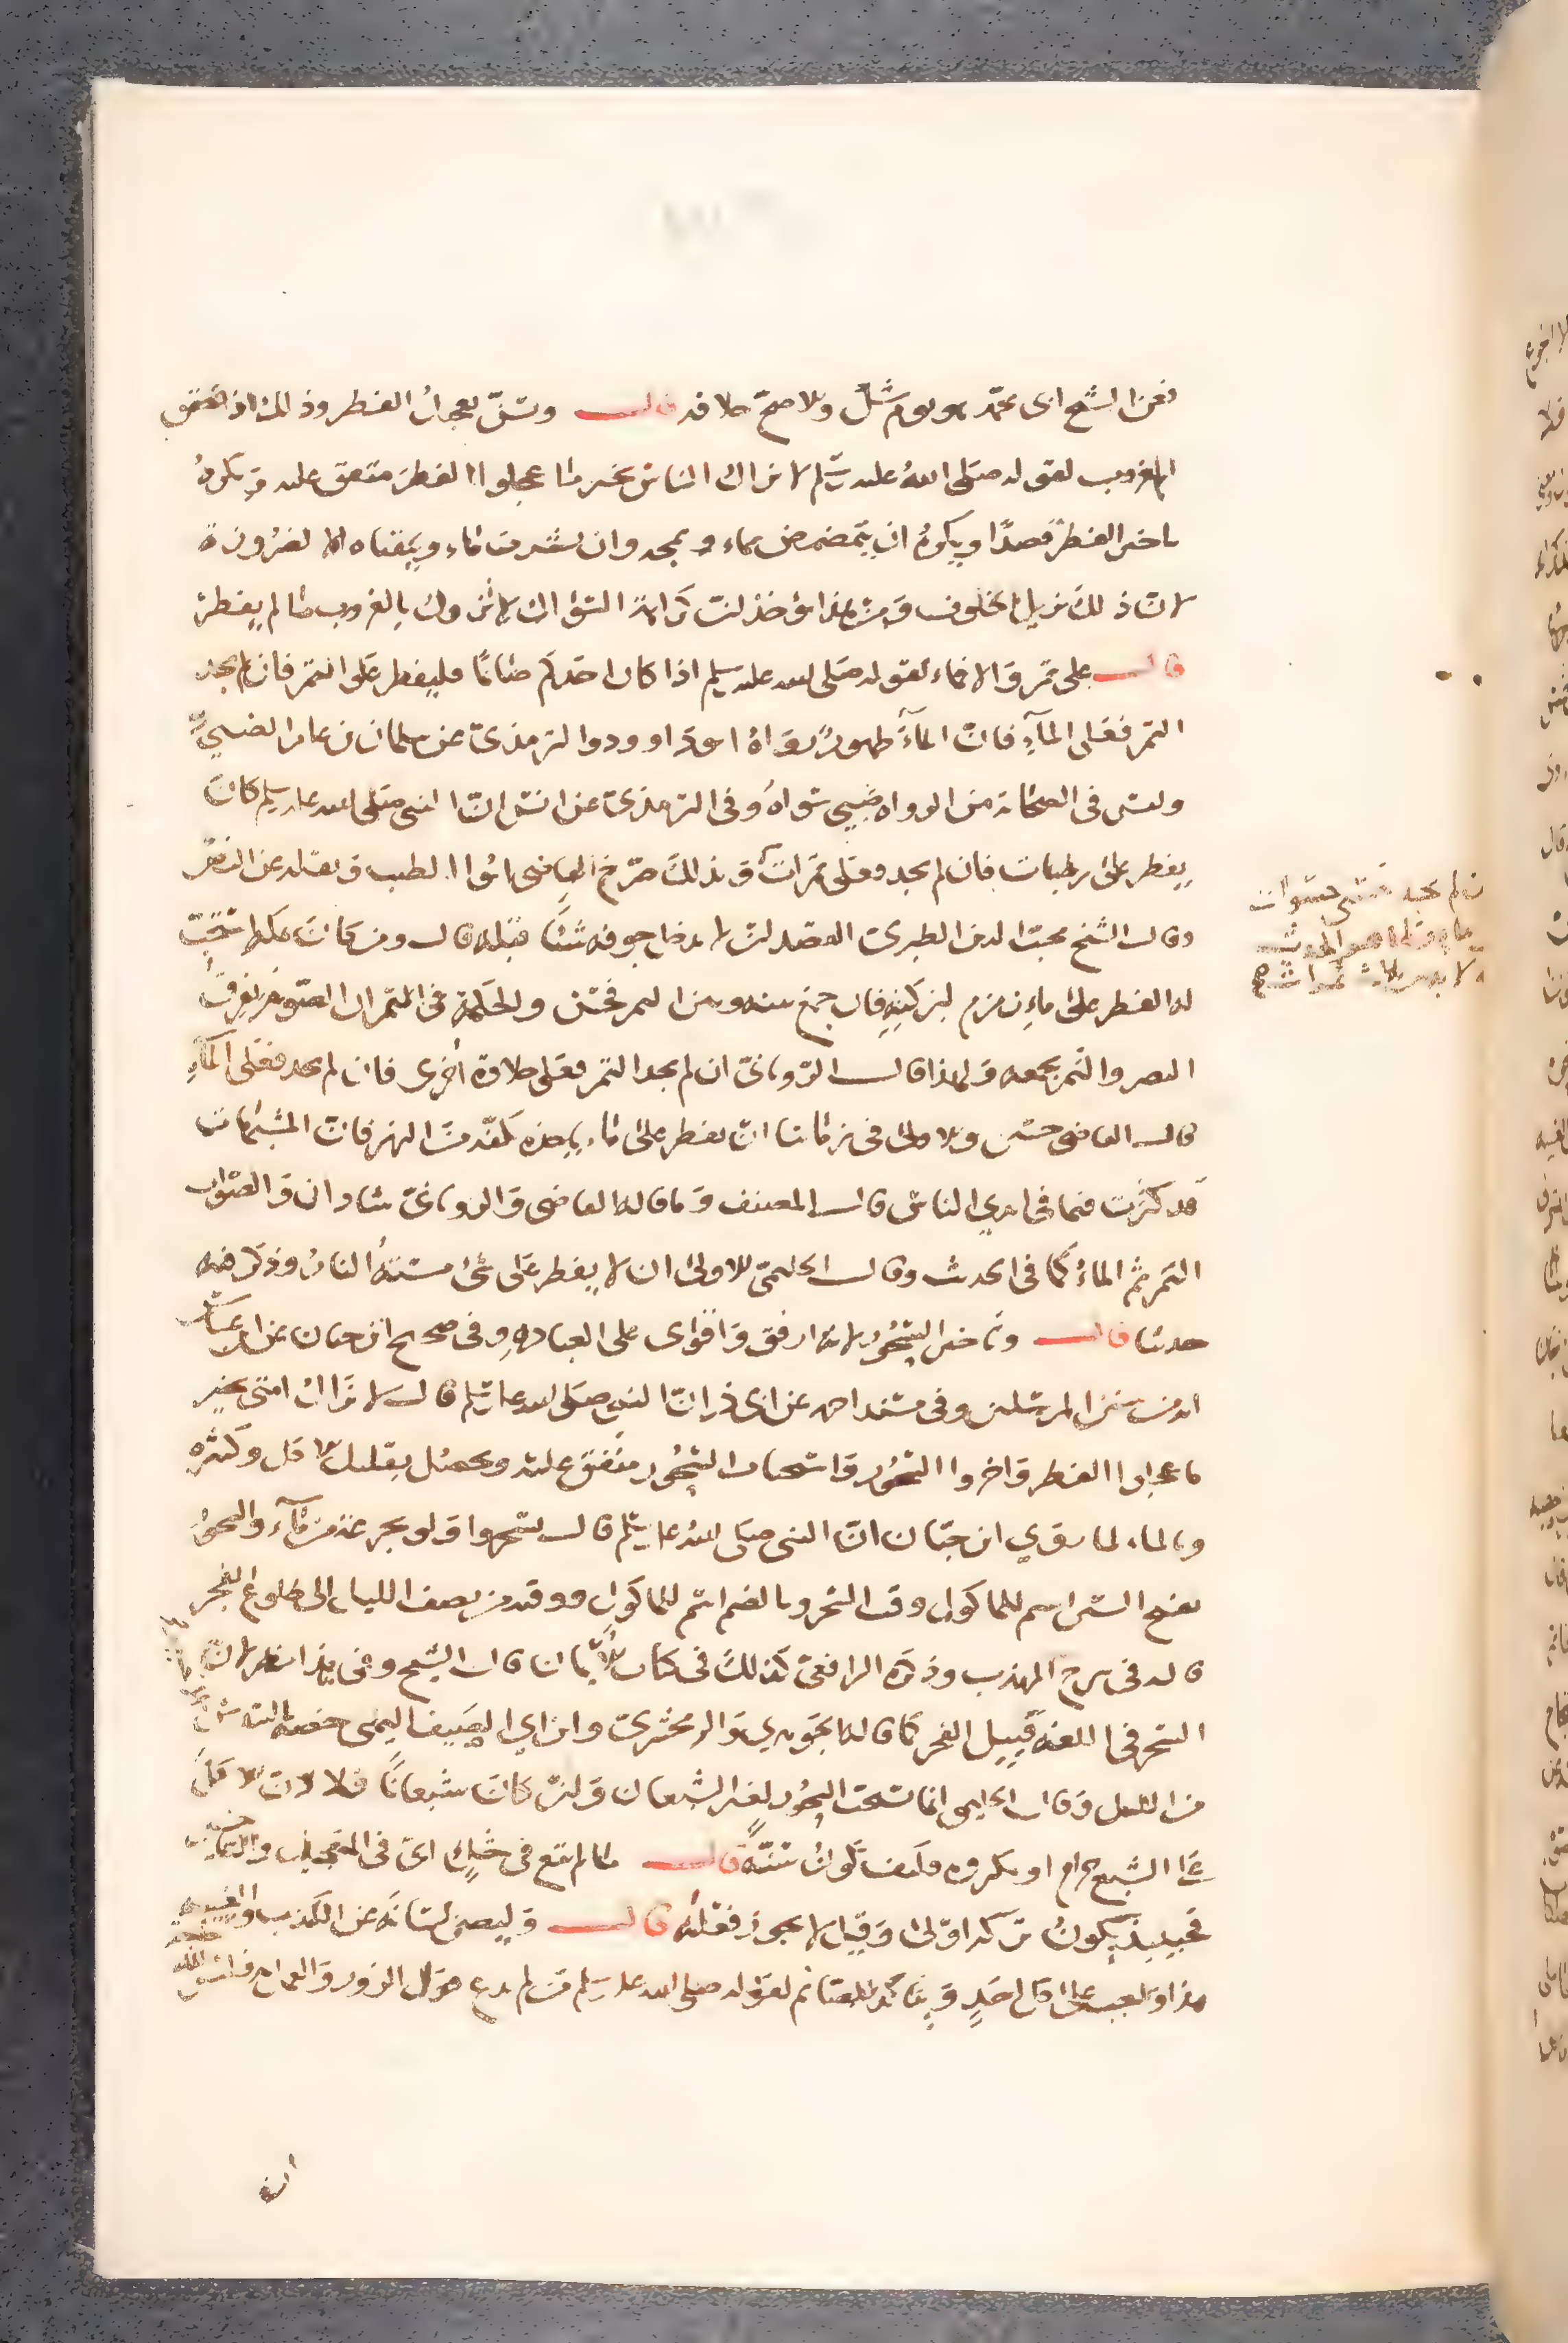 فعن الشيخ ابى محمد هو يوم شك والاصح خلافه قال ويسن تعجيل الفطر وذلك اذا تحقق
الغروب لقوله صلى الله عليه وسلم لا يزال الناس بخير ما عجلوا الفطر متفق عليه ويكره
تاخير الفطر قصدًا ويكره ان يتمضمض بماء ويمجه وان يشربه ويتقياه الا لضرورة
لان ذلك يزيل الخلوف ومن هذا يؤخذ ان كراهة السواك لا تزول بالغروب ما لم يفطر
قال على تمر والا فماء لقوله صلى الله عليه وسلم اذا كان احدكم صائمًا فليفطر على التمر فان لم يجد
التمر فعلى المآء فان المآء طهور رواه ابو داوود والترمذي عن سلمان بن عامر الضبي
وليس في الصحابة من الرواه ضبي سواه وفي الترمذي عن انس ان النبي صلى الله عليه وسلم كان
يفطر على رطبات فان لم يجد فعلى تمرات وبذلك صرح القاضي ابو الطيب ونقله عن النص
وقال الشيخ محب الدين الطبري القصد ان لا يدخل جوفه شيئًا قبله قال ومن كان بمكه استحب
له الفطر على ماء زمزم لبركته فان جمع بينه وبين التمر فحسن والحكمة في التمر ان الصوم يفرق
البصر والتمر يجمعه ولهذا قال الروياني ان لم يجد التمر فعلى حلاوة اخرى فان لم يجد فعلى المآء
قال القاضي حسين والاولى في زماننا ان يفطر على ماء ياخذه بكفه من النهر فان الشبهات
قد كثرت فيما في ايدي الناس قال المصنف وما قاله القاضي والروياني شاذان والصواب
التمر ثم الماء كما في الحديث وقال الحليمي الاولى ان لا يفطر على شئ مسته النار وذكر فيه
حديثا قال وتاخير السحور لانه ارفق واقوى على العباده وفي صحيح ابن حبان عن ابن عباس
انه من سنن المرسلين وفي مسند احمد عن ابي ذر ان النبي صلى الله عليه وسلم قال لا تزال امتي بخير
ما عجلوا الفطر واخروا السحور واستحباب السحور متفق عليه ويحصل بقليل الاكل وكثيره
وبالماء لما روي ابن حبان ان النبي صلى الله عليه وسلم قال تسحروا ولو بجرعة من مآء والسحور
بفتح السين اسم للماكول وقت السحر وبالضم اسم للاكل ووقته من نصف الليل الى طلوع الفجر
قاله في شرح المهذب وذكره الرافعي كذلك في كتاب الايمان قال الشيخ وفي هذا نظر لان
السحر في اللغه قبيل الفجر كما قاله الجوهري والزمخشري وابن ابي الصيف اليمني خصه بالسدس
من الليل وقال الحليمي انما يستحب السحور لغير الشبعان ولمن كان شبعانًا فلا لان الاكل
على الشبع حرام او مكروه فكيف تكون سنة قال ما لم يقع في شك اى في التعجيل والتاخير
فحينيذ يكون تركه اولى وقيل لا يجوز فعله قال وليصن لسانه عن الكذب والغيبه
هذا واجب على كل احد ويتاكد للصائم لقوله صلى الله عليه وسلم من لم يدع قول الزور والعمل به فليس لله
ان
ان لم يجد حسى حسوات